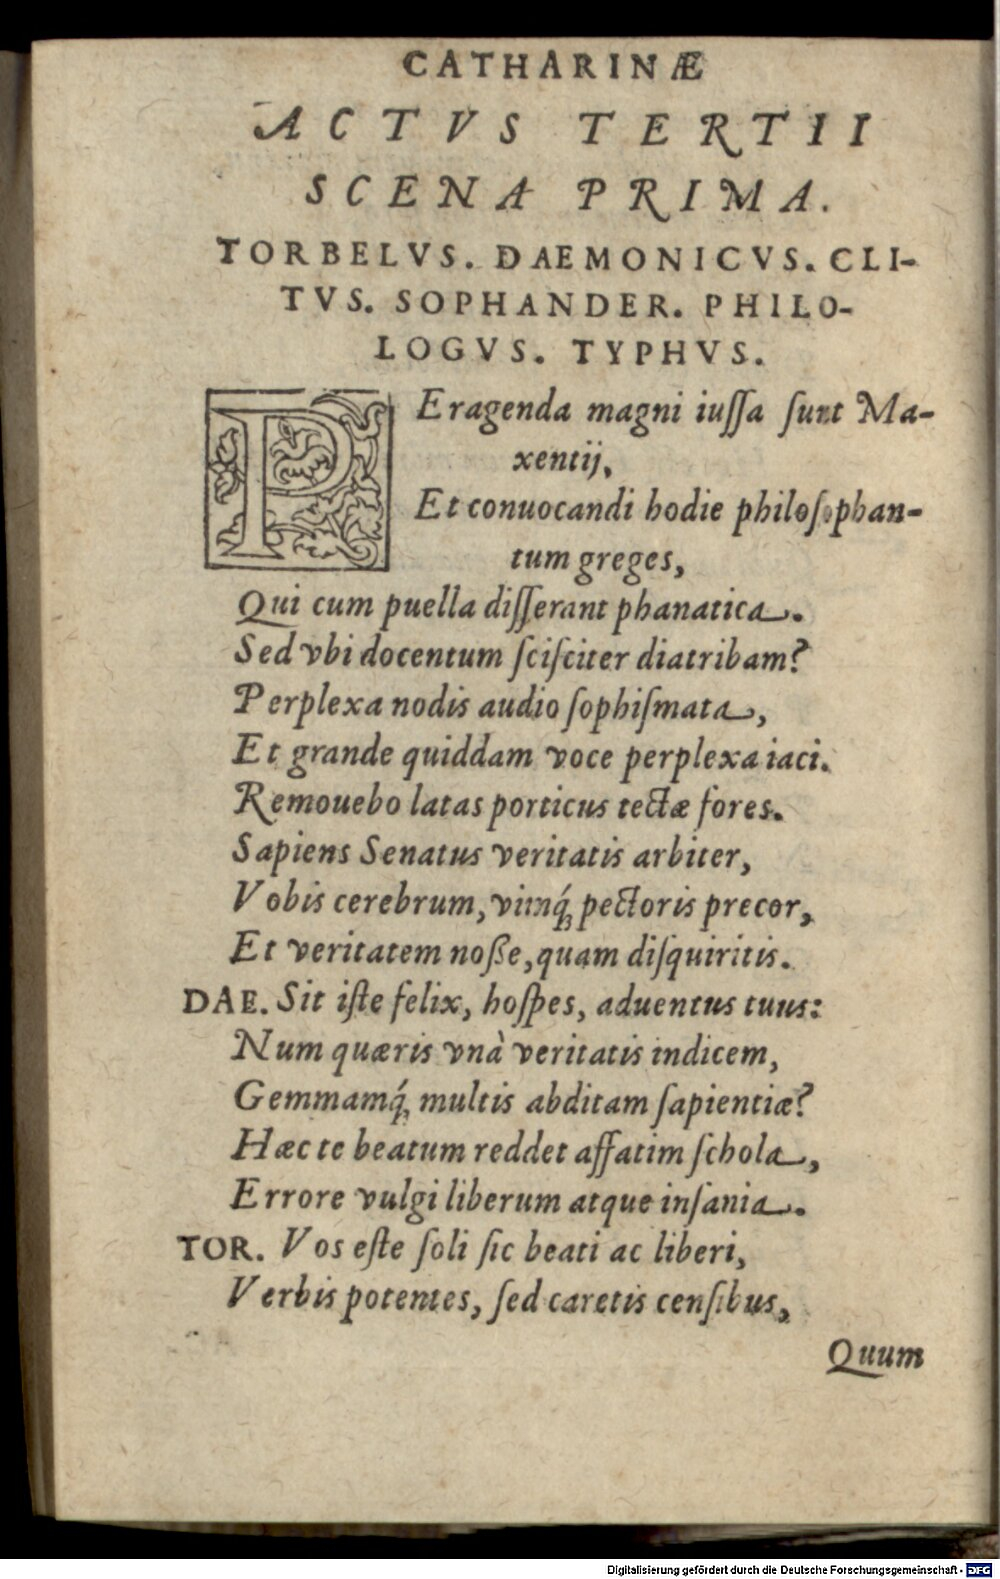 CATHARINÆ
ACTVS TERTII
SCENA PRIMA.
TORBELVS. DAEMONICVS. CLI-
TVS. SOPHANDER. PHILO-
LOGVS. TYPHVS.
PEragenda magni iuſſa ſunt Ma-
xentij,
Et conuocandi hodie philoſophan-
tum greges,
Qui cum puella diſſerant phanatica.
Sed vbi docentum ſciſciter diatribam?
Perplexa nodis audio ſophiſmata,
Et grande quiddam voce perplexa iaci.
Remouebo latas porticus tectæ fores.
Sapiens Senatus veritatis arbiter,
Vobis cerebrum, vimq́; pectoris precor,
Et veritatem noße, quam diſquiritis.
DAE. Sit iſte felix, hoſpes, aduentus tuus:
Num quæris vnà veritatis indicem,
Gemmamq́; multis abditam ſapientiæ?
Hæc te beatum reddet affatim ſchola,
Errore vulgi liberum atque inſania.
TOR. Vos eſte ſoli ſic beati ac liberi,
Verbis potentes, ſed caretis cenſibus,
Quum
Digitalisierung gefördert durch die Deutsche Forschungsgemeinschaft - DFG